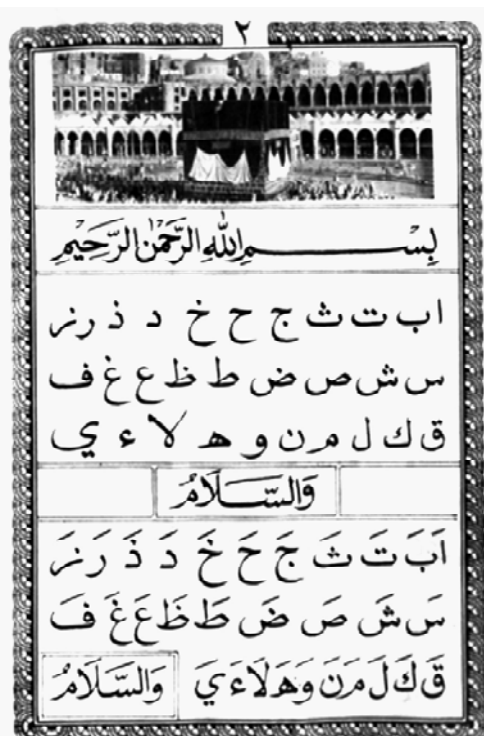 ٢
بِسْــــــمِ اللهِ الرَّحْمٰنِ الرَّحِيْمِ
ا ب ت ث ج ح خ د ذ ر ز
س ش ص ض ط ظ ع غ ف
ق ك ل م ن و ه لا ء ي
وَالسَّلَامُ
اَ بَ تَ ثَ جَ حَ خَ دَ ذَ رَ زَ
سَ شَ صَ ضَ طَ ظَ عَ غَ فَ
قَ كَ لَ مَ نَ وَ هَ لَا ءَ يَ وَالسَّلَامُ